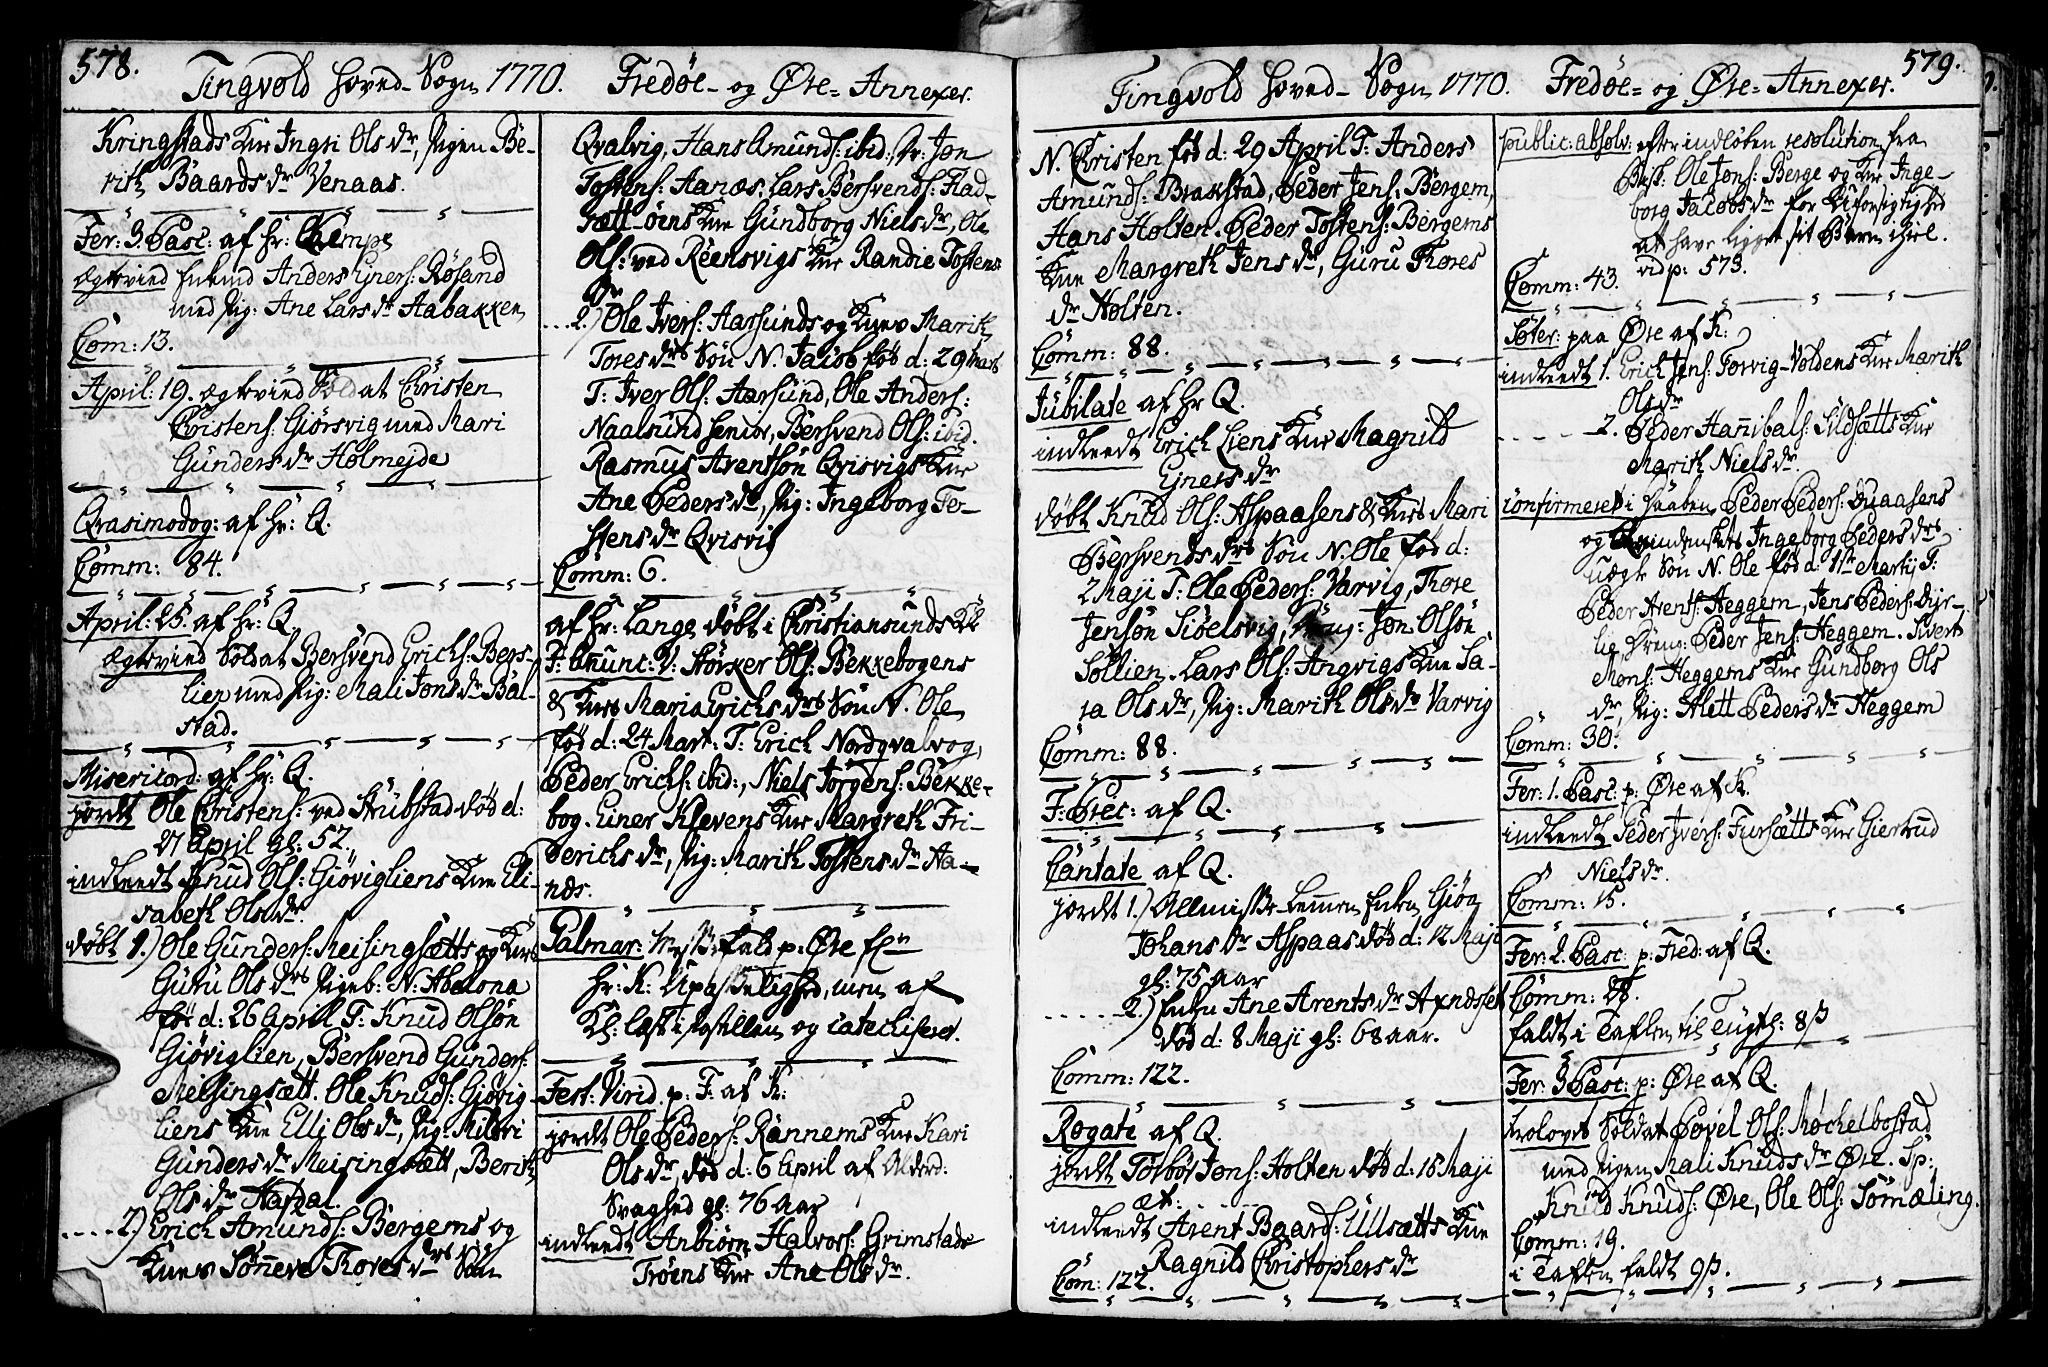 578.
Tingvold Hoved-Sogn 1770. Fredøe- og Øre-Annexer.
Kringstads Kne Ingri Ols dr, Pigen Be-
rith Baards dr Venaas.
Fer: 3. Pasc: af Hr: Kempe
ægtevied Enkmd Anders Eners: Røsand
med Pig: Ane Lars dr Aabakken
Com: 13.
April: 19. ægtevied Soldat Christen
Christens: Giørsvig med Mari
Gunders dr Holmejde
Qvasimodog: af Hr: Q.
Comm: 84.
April: 25. af Hr: Q.
ægtevied Soldat Bersvend Erichs: Bers-
lien med Pig: Mali Jons dr Bal-
stad.
Misericord: af Hr: Q.
jordt Ole Christens: ved Strubstad død d:
21 April gl: 52.
indleedt Knud Ols: Giøvigliens Kne Eli-
sabeth Ols dr.
døbt 1.) Ole Gunders: Meisingsætts og Knes
Guru Ols drs Pigeb: N: Abelona
fød d: 26 April T: Knud Olsøn
Giøviglien, Bersvend Gunders:
Meisingsætt. Ole Knuds: Giøvig-
liens Kne Elli Ols dr, Pig: Mildri
Gunders dr Meisingsætt, Berith
Ols dr Hafdal.
2) Erich Amunds: Bergems og
Knes Sønneve Thores drs Søn
Qvalvig, Hans Amunds: ibid: Dr: Jon
Tostens: Aanæs. Lars Bersvends: Flad-
sætt-øens Kne Gundborg Niels dr, Ole
Ols: ved Reensvigs Kne Randie Tostens
dr
2.) Ole Ivers: Aarsunds og Knes Marith
Tores drs Søn N. Jacob fød d: 29 Mart
T: Iver Ols: Aarsund, Ole Anders:
Naalsund senior, Bersvend Ols: ibid.
Rasmus Arentsøn Qvisvigs Kne
Ane Peders dr, Pig: Ingeborg To-
stens dr Qvisvig
Comm: 6.
af Hr: Lange døbt i Christiansunds Kk
F: Anunc: V: Størker Ols: Bekkebogens
& Knes Maria Erichs drs Søn N. Ole
fød d: 24 Mart: T: Erich Nordqvalvog,
Peder Erichs: ibid:, Niels Jørgens: Bekke-
bog. Einer Klevens Kne Margreth Fri-
derichs dr, Pig: Marith Tostens dr Aa-
næs.
Palmar: Messefald p: Øre fra
Hr: K: Upasselighed, men af
Kl: læst i Postillen og catechiseret.
Fest: Virid. p: F: af K:
jordt Ole Peders: Rønnems Kne Kari
Ols dr, død d: 6 April af Alderd:
Svaghed gl: 76 aar
indleedt Anbiørn Halvors: Grimstads
Trøens Kne Ane Ols dr.
579.
Tingvold Hoved-Sogn 1770. Fredøe- og Øre-Annexer.
N. Christen fød d: 29 April T: Anders
Amunds: Brakstad, Peder Jens: Bergem,
Hans Holten. Peder Tostens: Bergems
Kne Margreth Jens dr, Guru Thores
dr Holten.
Comm: 88.
Jubilate af Hr Q.
indleedt Erich Liens Kne Magnild
Eners dr
døbt Knud Ols: Aspaasens & Knes Mari
Bersvends drs Søn N. Ole fød d:
2 Maji T: Ole Peders: Varvig, Thore
Jensøn Siøelsvig, Jon Olsøn
Sollien. Lars Ols: Angvigs Kne Sa-
ra Ols dr, Pig: Marith Ols dr Varvig
Comm: 88.
F: Prec: af Q.
Cantate af Q.
jordt 1.) Allmisse-Lemmen Enken Giøa
Johans dr Aspaas død d: 12 Maji
gl: 75 aar
2.) Enken Ane Arents dr Axndset
død d: 8 Maji gl: 68 aar.
Comm: 122.
Rogate af Q.
jordt Torbør Jons: Holten død d: 16 Maji
æt:
indleedt Arent Baards: Ullsætts Kne
Ragnild Christophers dr
Com: 122.
public: absolv: efter indløben resolution fra
Bisk: Ole Jons: Berge og Kne Inge-
borg Jacobs dr for Uforsigtighed
at have ligget sit Barn ihiel.
vid p: 573.
Comm: 43.
Søter: paa Øre af K:
indleedt 1. Erich Jens: Torvig-Voldens Kne Marith
Ols dr
2. Peder Hannibals: Sildsætts Kne
Marith Niels dr.
confirmeret i Haaben Peder Peders: Duaasens
og Qvindeskets Ingeborg Peders drs
uægte Søn N. Ole fød d: 11te Martij T:
Peder Arents: Heggem, Jens Peders: Dyr-
lie, Dreng: Peder Jens: Heggem. Sivert
Mons: Heggems Kne Gundborg Ols
dr, Pig: Alett Peders dr Heggem
Comm: 30.
Fer: 1. Pasc: p: Øre af K.
indleedt Peder Ivers: Fursætts Kne Giertrud
Niels dr.
Comm: 15.
Fer: 2. Pasc: p: Fred: af Q.
Comm: 28.
faldt i Taflen til Tugth: 8 ß
Fer: 3 Pasc: p: Øre af Q.
trolovet Soldat Povel Ols: Møchelbostad
med Pigen Mali Knuds dr Øre. Sp:
Knud Knuds: Øre, Ole Ols: Sømæling.
Comm: 19.
i Taflen faldt 9 ß.